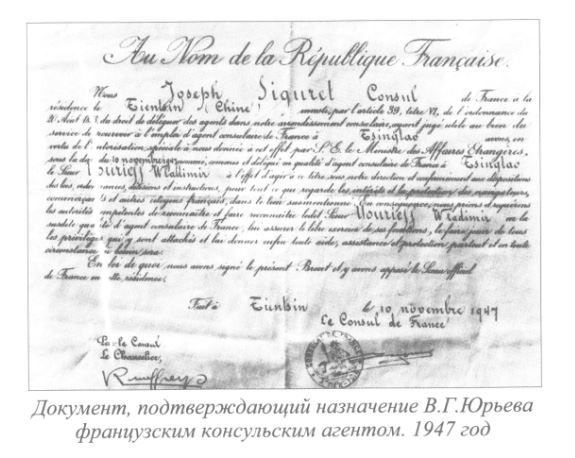 Au Nom de la République Française.
Nous Joseph Siguret Consul de France à la
résidence de Tientsin (Chine) investi, par l'article 39, titre VI, de l'ordonnance du
20 Août 18 3, du droit de déléguer des agents dans notre arrondissement consulaire, ayant jugé utile au bien du
service de à l'emploi d'agent consulaire de France à Tsingtao avons, en
vertu de l'autorisation spéciale à nous donnée à cet effet par S. E. le Ministre des Affaires Etrangères,
sous la date du 10 novembre 1947 nommé, commis et délégué en qualité d'agent consulaire de France à Tsingtao
le Sieur Yourieff Wladimir à l'effet d'agir à ce titre, sous notre direction et conformément aux dispositions
des lois, ordonnances, décisions et instructions, pour tout ce qui regarde les intérêts et la protection, des navigateurs,
commerçants et autres citoyens français, dans le lieu susmentionné. En conséquence, nous prions et requérons
les autorités compétentes de reconnaître et faire reconnaître ledit Sieur Yourieff Wladimir en la
susdite qualité d'agent consulaire de France, lui assurer le libre exercice de ses fonctions, le faire jouir de tous
les privilèges qui y sont attachés et lui donner enfin toute aide, assistance et protection partout et en toute
circonstance besoin sera.
En foi de quoi, nous avons signé le présent Brevet et y avons apposé le Sceau officiel
de France en cette résidence.
Fait à Tientsin le 10 novembre 1947
Le Consul de France
Par le Consul
Le Chancelier,
Документ, подтверждающий назначение В.Г.Юрьева
французским консульским агентом. 1947 год